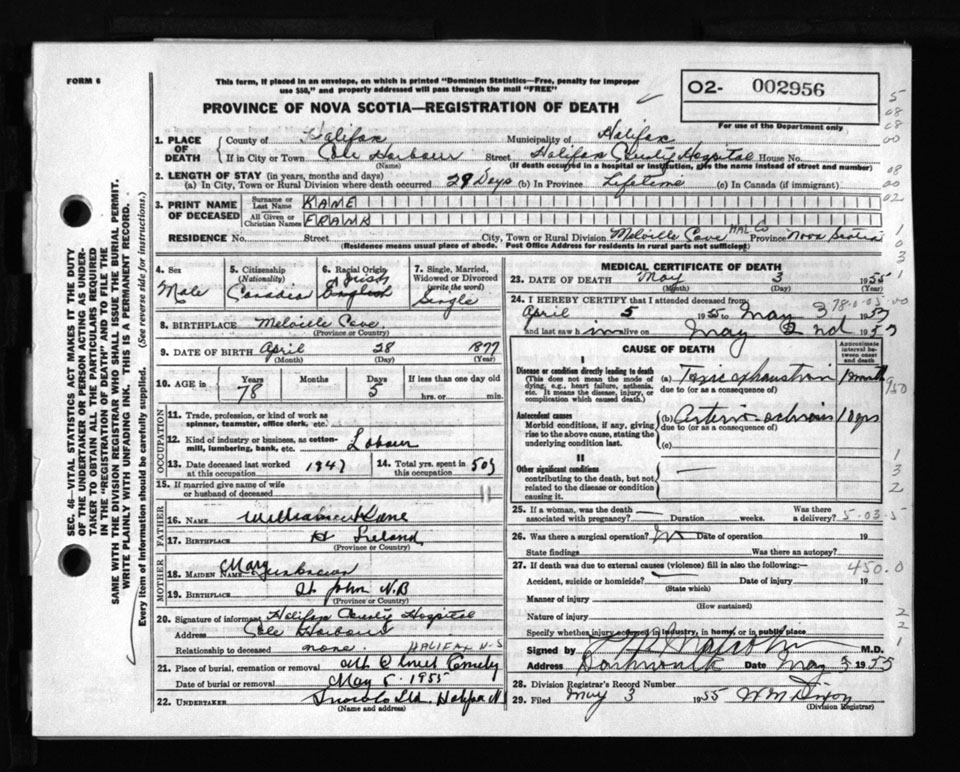 FORM 6
This form, if placed in an envelope, on which is printed "Dominion Statistics—Free, penalty for improper
use $50," and properly addressed will pass through the mail "FREE"
PROVINCE OF NOVA SCOTIA—REGISTRATION OF DEATH
O2- 002956
For use of the Department only
SEC. 46—VITAL STATISTICS ACT MAKES IT THE DUTY
OF THE UNDERTAKER OR PERSON ACTING AS UNDER-
TAKER TO OBTAIN ALL THE PARTICULARS REQUIRED
IN THE "REGISTRATION OF DEATH" AND TO FILE THE
SAME WITH THE DIVISION REGISTRAR WHO SHALL ISSUE THE BURIAL PERMIT.
WRITE PLAINLY WITH UNFADING INK. THIS IS A PERMANENT RECORD.
Every item of information should be carefully supplied. (See reverse side for instructions.)
1. PLACE OF DEATH
County of Halifax Municipality of Halifax
If in City or Town Cole Harbour Street Halifax County Hospital House No.
(Name) (If death occurred in a hospital or institution, give the name instead of street and number)
2. LENGTH OF STAY (in years, months and days)
(a) In City, Town or Rural Division where death occurred 29 Days (b) In Province Lifetime (c) In Canada (if immigrant)
3. PRINT NAME OF DECEASED
Surname or Last Name KANE
All Given or Christian Names FRANK
HAL Co
RESIDENCE No. Street City, Town or Rural Division Melville Cove Province Nova Scotia
(Residence means usual place of abode. Post Office Address for residents in rural parts not sufficient)
4. Sex Male
5. Citizenship (Nationality) Canadia
6. Racial Origin Irish English
7. Single, Married, Widowed or Divorced (write the word) Single
8. BIRTHPLACE Melville Cove
(Province or Country)
9. DATE OF BIRTH April 28 1877
(Month) (Day) (Year)
10. AGE in Years 78 Months Days 5 If less than one day old
hrs. or min.
OCCUPATION
11. Trade, profession, or kind of work as
spinner, teamster, office clerk, etc.
12. Kind of industry or business, as cotton-
mill, lumbering, bank, etc. Labour
13. Date deceased last worked
at this occupation 1947
14. Total yrs. spent in
this occupation 50y
15. If married give name of wife
or husband of deceased
FATHER
16. NAME William Kane
17. BIRTHPLACE Ireland
(Province or Country)
MOTHER
18. MAIDEN NAME Mary
19. BIRTHPLACE St John N.B
(Province or Country)
20. Signature of informant Halifax County Hospital
Address Cole Harbour
Relationship to deceased none. HALIFAX N-S
21. Place of burial, cremation or removal Mt Olivet Cemety
Date of burial or removal May 5. 1955
22. UNDERTAKER Snows Ltd. Halifax N
(Name and address)
MEDICAL CERTIFICATE OF DEATH
23. DATE OF DEATH May 3 1955
(Month) (Day) (Year)
24. I HEREBY CERTIFY that I attended deceased from
April 5 1955 to May 3 1955
and last saw him alive on May 2nd 1955
CAUSE OF DEATH
Approximate interval between onset and death
I
Disease or condition directly leading to death
(This does not mean the mode of
dying, e.g., heart failure, asthenia,
etc. It means the disease, injury, or
complication which caused death.)
(a) Toxic exhaustion 1 month
due to (or as a consequence of)
Antecedent causes
Morbid conditions, if any, giving
rise to the above cause, stating the
underlying condition last.
(b) Arterio-sclerosis 10 yrs
due to (or as a consequence of)
(c)
II
Other significant conditions
contributing to the death, but not
related to the disease or condition
causing it.
25. If a woman, was the death
associated with pregnancy? Duration weeks. Was there
a delivery?
26. Was there a surgical operation? No Date of operation 19
State findings Was there an autopsy?
27. If death was due to external causes (violence) fill in also the following:—
450.0
Accident, suicide or homicide? Date of injury 19
(State which)
Manner of injury
(How sustained)
Nature of injury
Specify whether injury occurred in industry, in home, or in public place
Signed by M.D.
Address Dartmouth Date May 3 1955
28. Division Registrar's Record Number
29. Filed May 3 1955 W M Dixon
(Division Registrar)